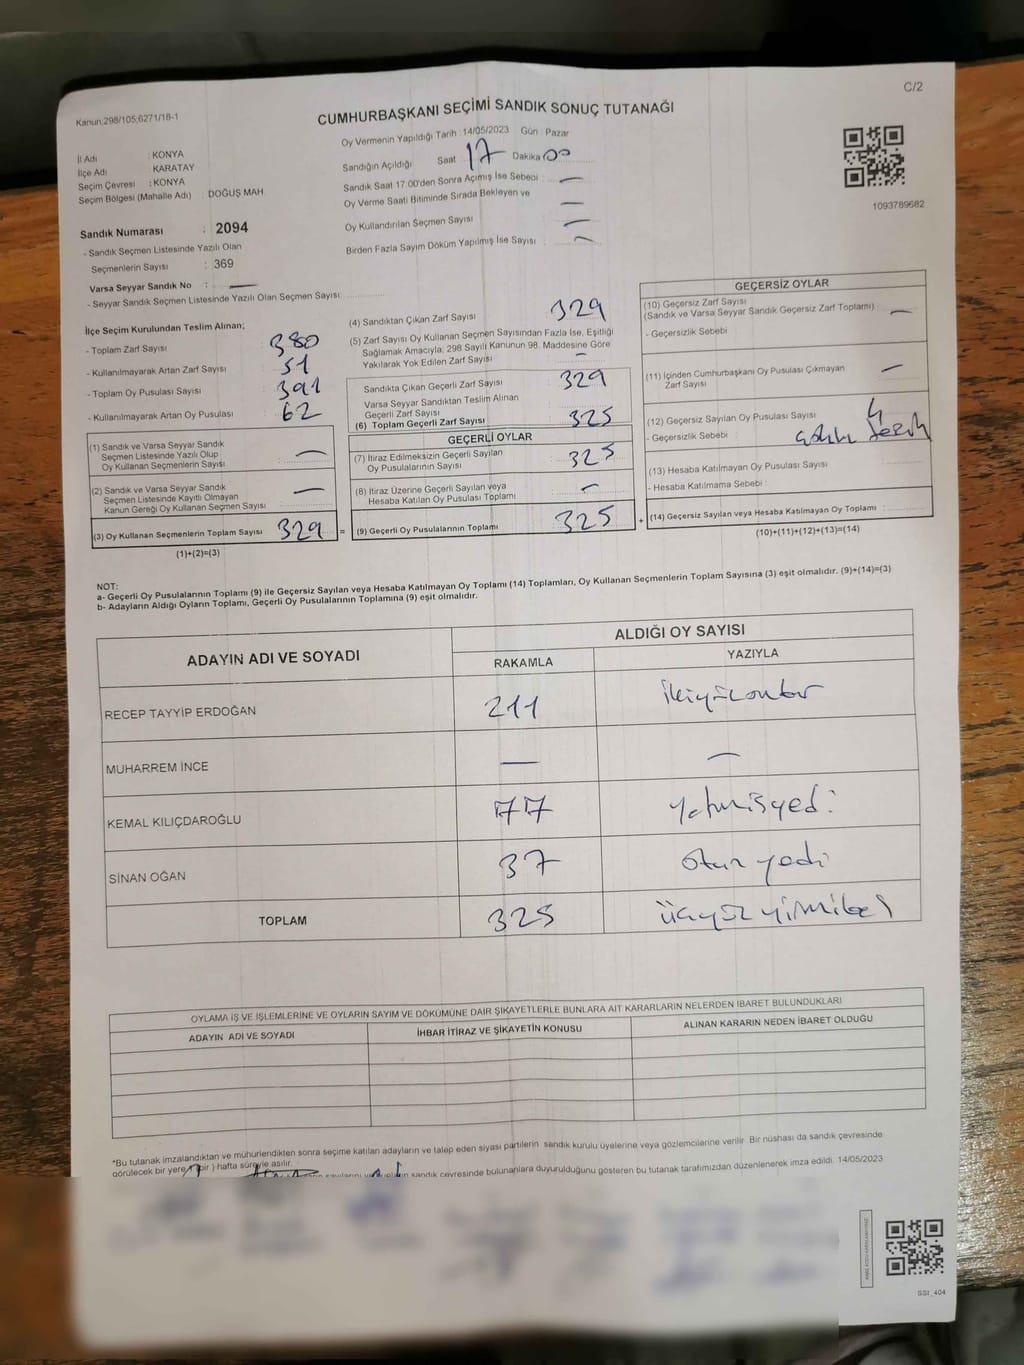 C/2
Kanun,298/105;6271/18-1
CUMHURBAŞKANI SEÇİMİ SANDIK SONUÇ TUTANAĞI
Oy Vermenin Yapıldığı Tarih : 14/05/2023 Gün : Pazar
İl Adı : KONYA
İlçe Adı : KARATAY
Seçim Çevresi : KONYA
Seçim Bölgesi (Mahalle Adı) : DOĞUŞ MAH.
Sandığın Açıldığı Saat 17 Dakika 00
Sandık Saat 17:00'den Sonra Açımış İse Sebebi : —
Oy Verme Saati Bitiminde Sırada Bekleyen ve —
Oy Kullandırılan Seçmen Sayısı —
Birden Fazla Sayım Döküm Yapılmış İse Sayısı : —
1093789682
Sandık Numarası : 2094
- Sandık Seçmen Listesinde Yazılı Olan
Seçmenlerin Sayısı : 369
Varsa Seyyar Sandık No : —
- Seyyar Sandık Seçmen Listesinde Yazılı Olan Seçmen Sayısı:
İlçe Seçim Kurulundan Teslim Alınan;
- Toplam Zarf Sayısı : 380
- Kullanılmayarak Artan Zarf Sayısı : 51
- Toplam Oy Pusulası Sayısı : 391
- Kullanılmayarak Artan Oy Pusulası : 62
(1) Sandık ve Varsa Seyyar Sandık
Seçmen Listesinde Yazılı Olup
Oy Kullanan Seçmenlerin Sayısı —
(2) Sandık ve Varsa Seyyar Sandık
Seçmen Listesinde Kayıtlı Olmayan
Kanun Gereği Oy Kullanan Seçmen Sayısı —
(3) Oy Kullanan Seçmenlerin Toplam Sayısı 329
(1)+(2)=(3)
(4) Sandıktan Çıkan Zarf Sayısı 329
(5) Zarf Sayısı Oy Kullanan Seçmen Sayısından Fazla İse, Eşitliği
Sağlamak Amacıyla, 298 Sayılı Kanunun 98. Maddesine Göre
Yakılarak Yok Edilen Zarf Sayısı —
Sandıkta Çıkan Geçerli Zarf Sayısı 329
Varsa Seyyar Sandıktan Teslim Alınan
Geçerli Zarf Sayısı
(6) Toplam Geçerli Zarf Sayısı 325
GEÇERLİ OYLAR
(7) İtiraz Edilmeksizin Geçerli Sayılan
Oy Pusulalarının Sayısı 325
(8) İtiraz Üzerine Geçerli Sayılan veya
Hesaba Katılan Oy Pusulası Toplamı —
= (9) Geçerli Oy Pusulalarının Toplamı 325
GEÇERSİZ OYLAR
(10) Geçersiz Zarf Sayısı
(Sandık ve Varsa Seyyar Sandık Geçersiz Zarf Toplamı) : —
- Geçersizlik Sebebi :
(11) İçinden Cumhurbaşkanı Oy Pusulası Çıkmayan
Zarf Sayısı —
(12) Geçersiz Sayılan Oy Pusulası Sayısı 4
- Geçersizlik Sebebi :
(13) Hesaba Katılmayan Oy Pusulası Sayısı
- Hesaba Katılmama Sebebi :
+ (14) Geçersiz Sayılan veya Hesaba Katılmayan Oy Toplamı :
(10)+(11)+(12)+(13)=(14)
NOT:
a- Geçerli Oy Pusulalarının Toplamı (9) ile Geçersiz Sayılan veya Hesaba Katılmayan Oy Toplamı (14) Toplamları, Oy Kullanan Seçmenlerin Toplam Sayısına (3) eşit olmalıdır. (9)+(14)=(3)
b- Adayların Aldığı Oyların Toplamı, Geçerli Oy Pusulalarının Toplamına (9) eşit olmalıdır.
ADAYIN ADI VE SOYADI
ALDIĞI OY SAYISI
RAKAMLA YAZIYLA
RECEP TAYYİP ERDOĞAN 211 ikiyüzonbir
MUHARREM İNCE — —
KEMAL KILIÇDAROĞLU 77 yetmişyedi
SİNAN OĞAN 37 otuz yedi
TOPLAM 325 üçyüz yirmibeş
OYLAMA İŞ VE İŞLEMLERİNE VE OYLARIN SAYIM VE DÖKÜMÜNE DAİR ŞİKAYETLERLE BUNLARA AİT KARARLARIN NELERDEN İBARET BULUNDUKLARI
ADAYIN ADI VE SOYADI İHBAR İTİRAZ VE ŞİKAYETİN KONUSU ALINAN KARARIN NEDEN İBARET OLDUĞU
*Bu tutanak imzalandıktan ve mühürlendikten sonra seçime katılan adayların ve talep eden siyasi partilerin sandık kurulu üyelerine veya gözlemcilerine verilir. Bir nüshası da sandık çevresinde
görülecek bir yere (bir) hafta süreyle asılır.
sandık çevresinde bulunanlara duyurulduğunu gösteren bu tutanak tarafımızdan düzenlenerek imza edildi. 14/05/2023
SSI_404